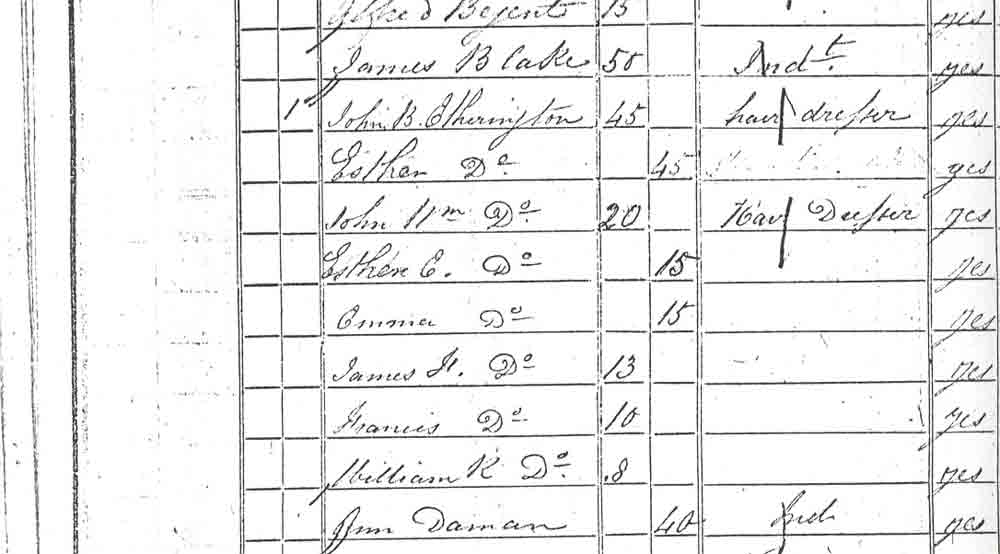 Alfred Bejent 15 yes
James Blake 50 Indt. yes
1 John B. Etherington 45 hair dresser yes
Esther Do 45 yes
John Wm Do 20 Hair Dresser yes
Esther E. Do 15 yes
Emma Do 15 yes
James H. Do 13 yes
Francis Do 10 yes
William R Do 8 yes
Ann Daman 40 Ind yes